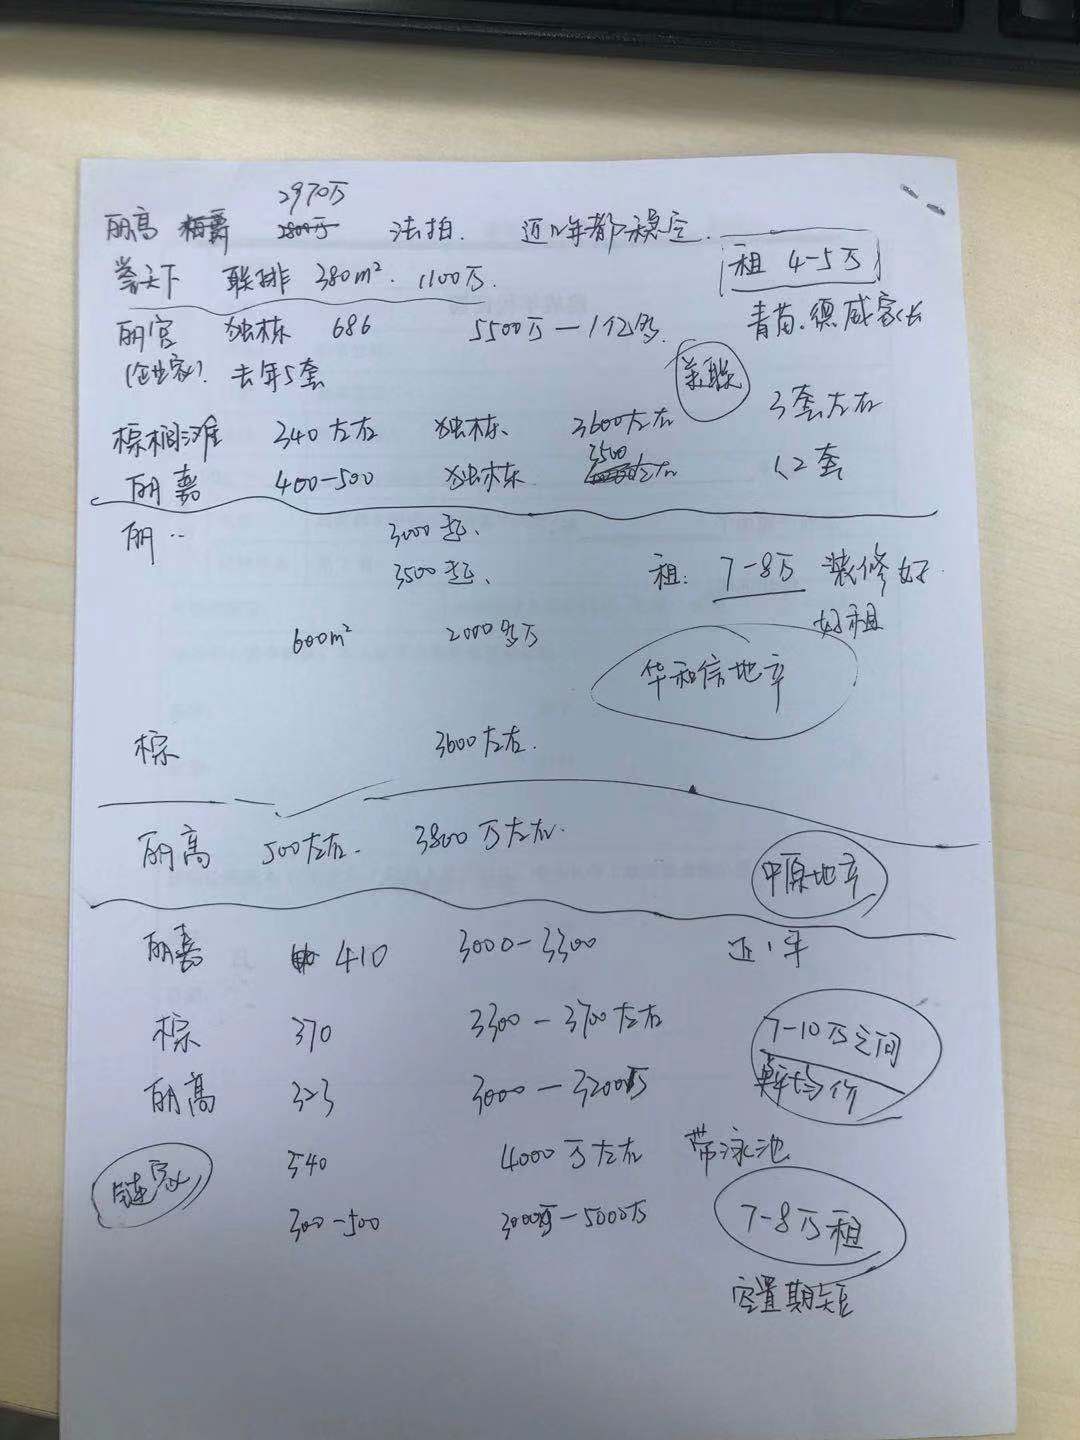 2970万
丽高 法拍. 近几年都稳定.
誉天下 联排 380m². 1100万.
租 4-5万
丽宫 独栋 686 5500万—1亿多.
青苗.德威家长
(企业家). 去年5套
美联
棕榈滩 340左右 独栋、 3600左右 3套左右
3500
丽嘉 400-500 独栋. 左右 <2套
丽‥ 3000起、
3500起、 租: 7-8万 装修好.
好租
600m² 2000多万
华和信地产
棕 3600左右.
丽高 500左右. 3800万左右.
中原地产
丽嘉 410 3000-3300 近1年
棕 370 3300-3700左右
7-10万之间
丽高 323 3000-3200万
均价
链家 540 4000万左右 带泳池
300-500 3000万-5000万 7-8万租
空置期短